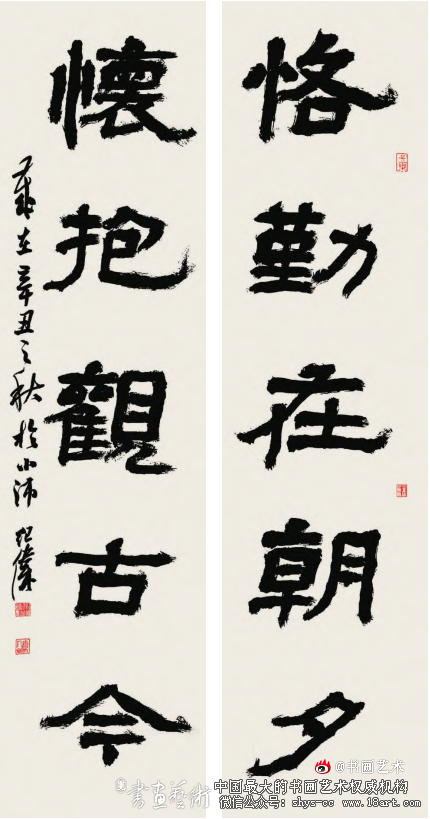 恪勤在朝夕
懷抱觀古今
歲在辛丑之秋於小沛
@书画艺术
書畫藝術
中国最大的书画艺术权威机构
微信公众号：shys-cc www.18art.com